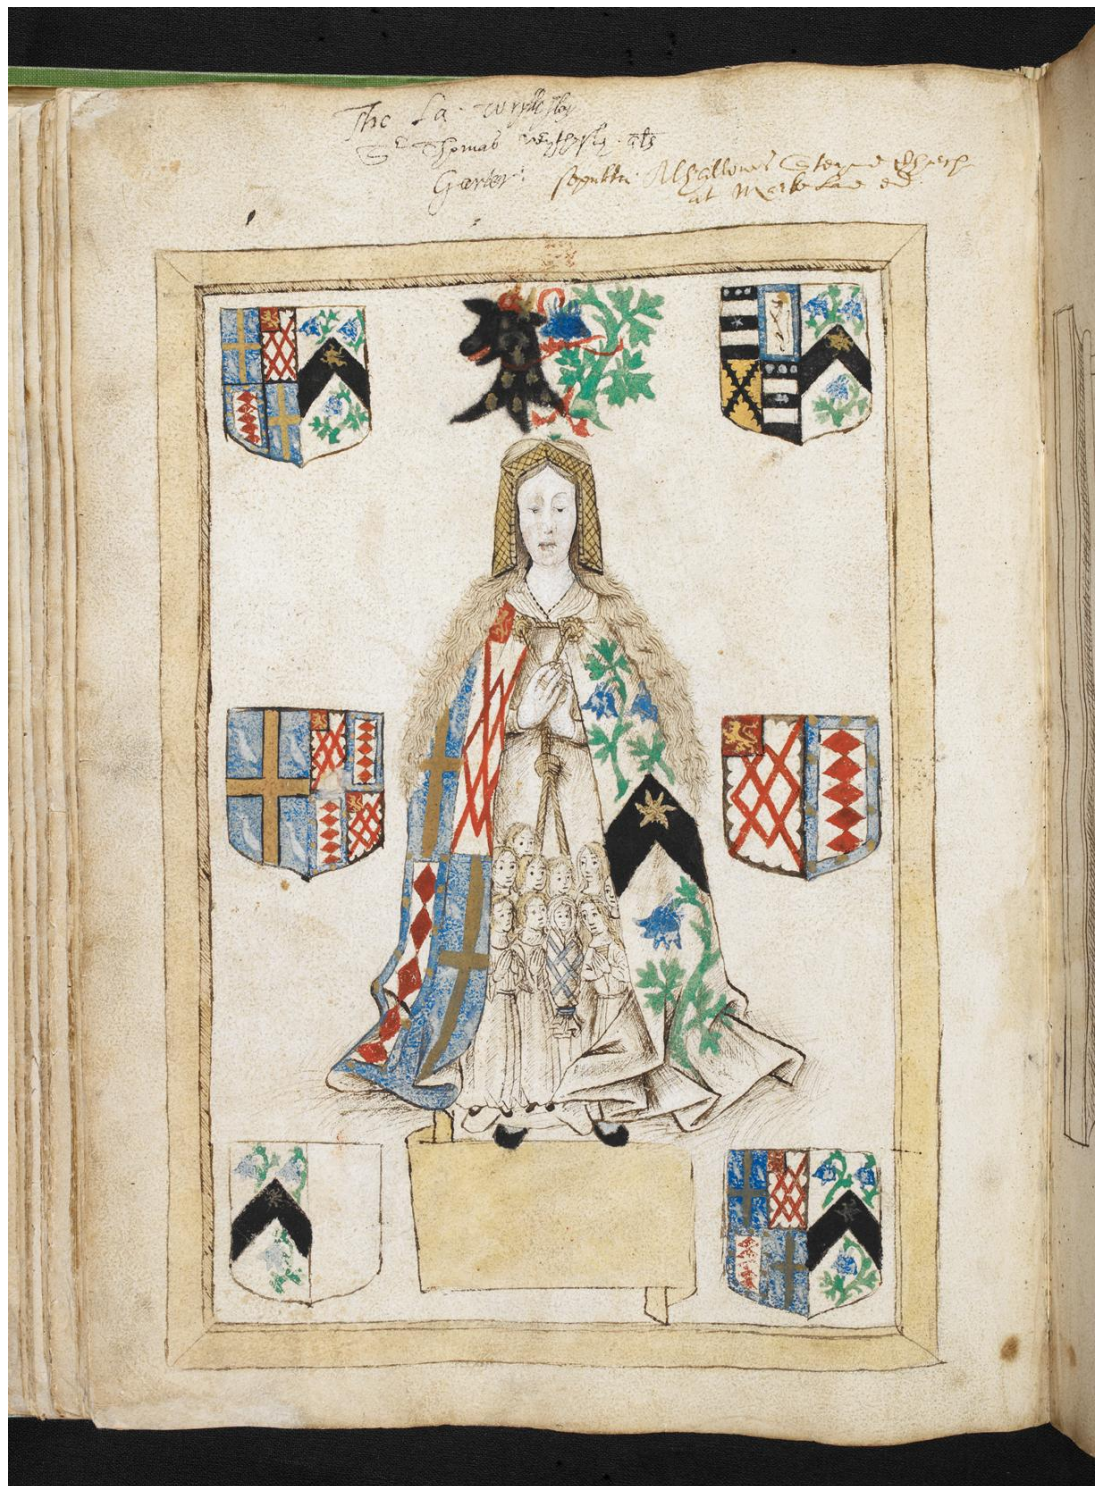 The La: wrythesley
Sr Thomas wrythesly als
Garter: sepultu Alhallowes
at Marke Lane end